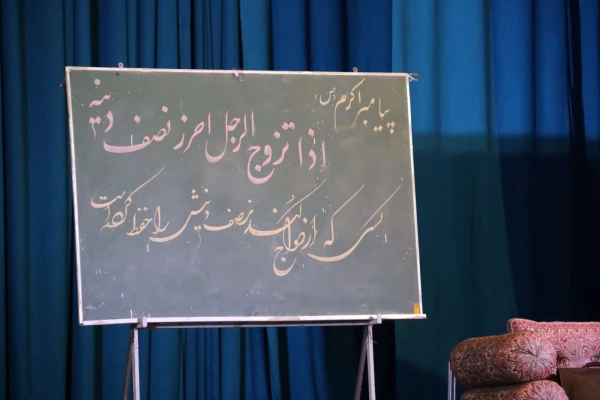 پیامبر اکرم (ص)
اذا تزوج الرجل احرز نصف دینه
کسی که ازدواج کند نصف دینش را حفظ کرده است